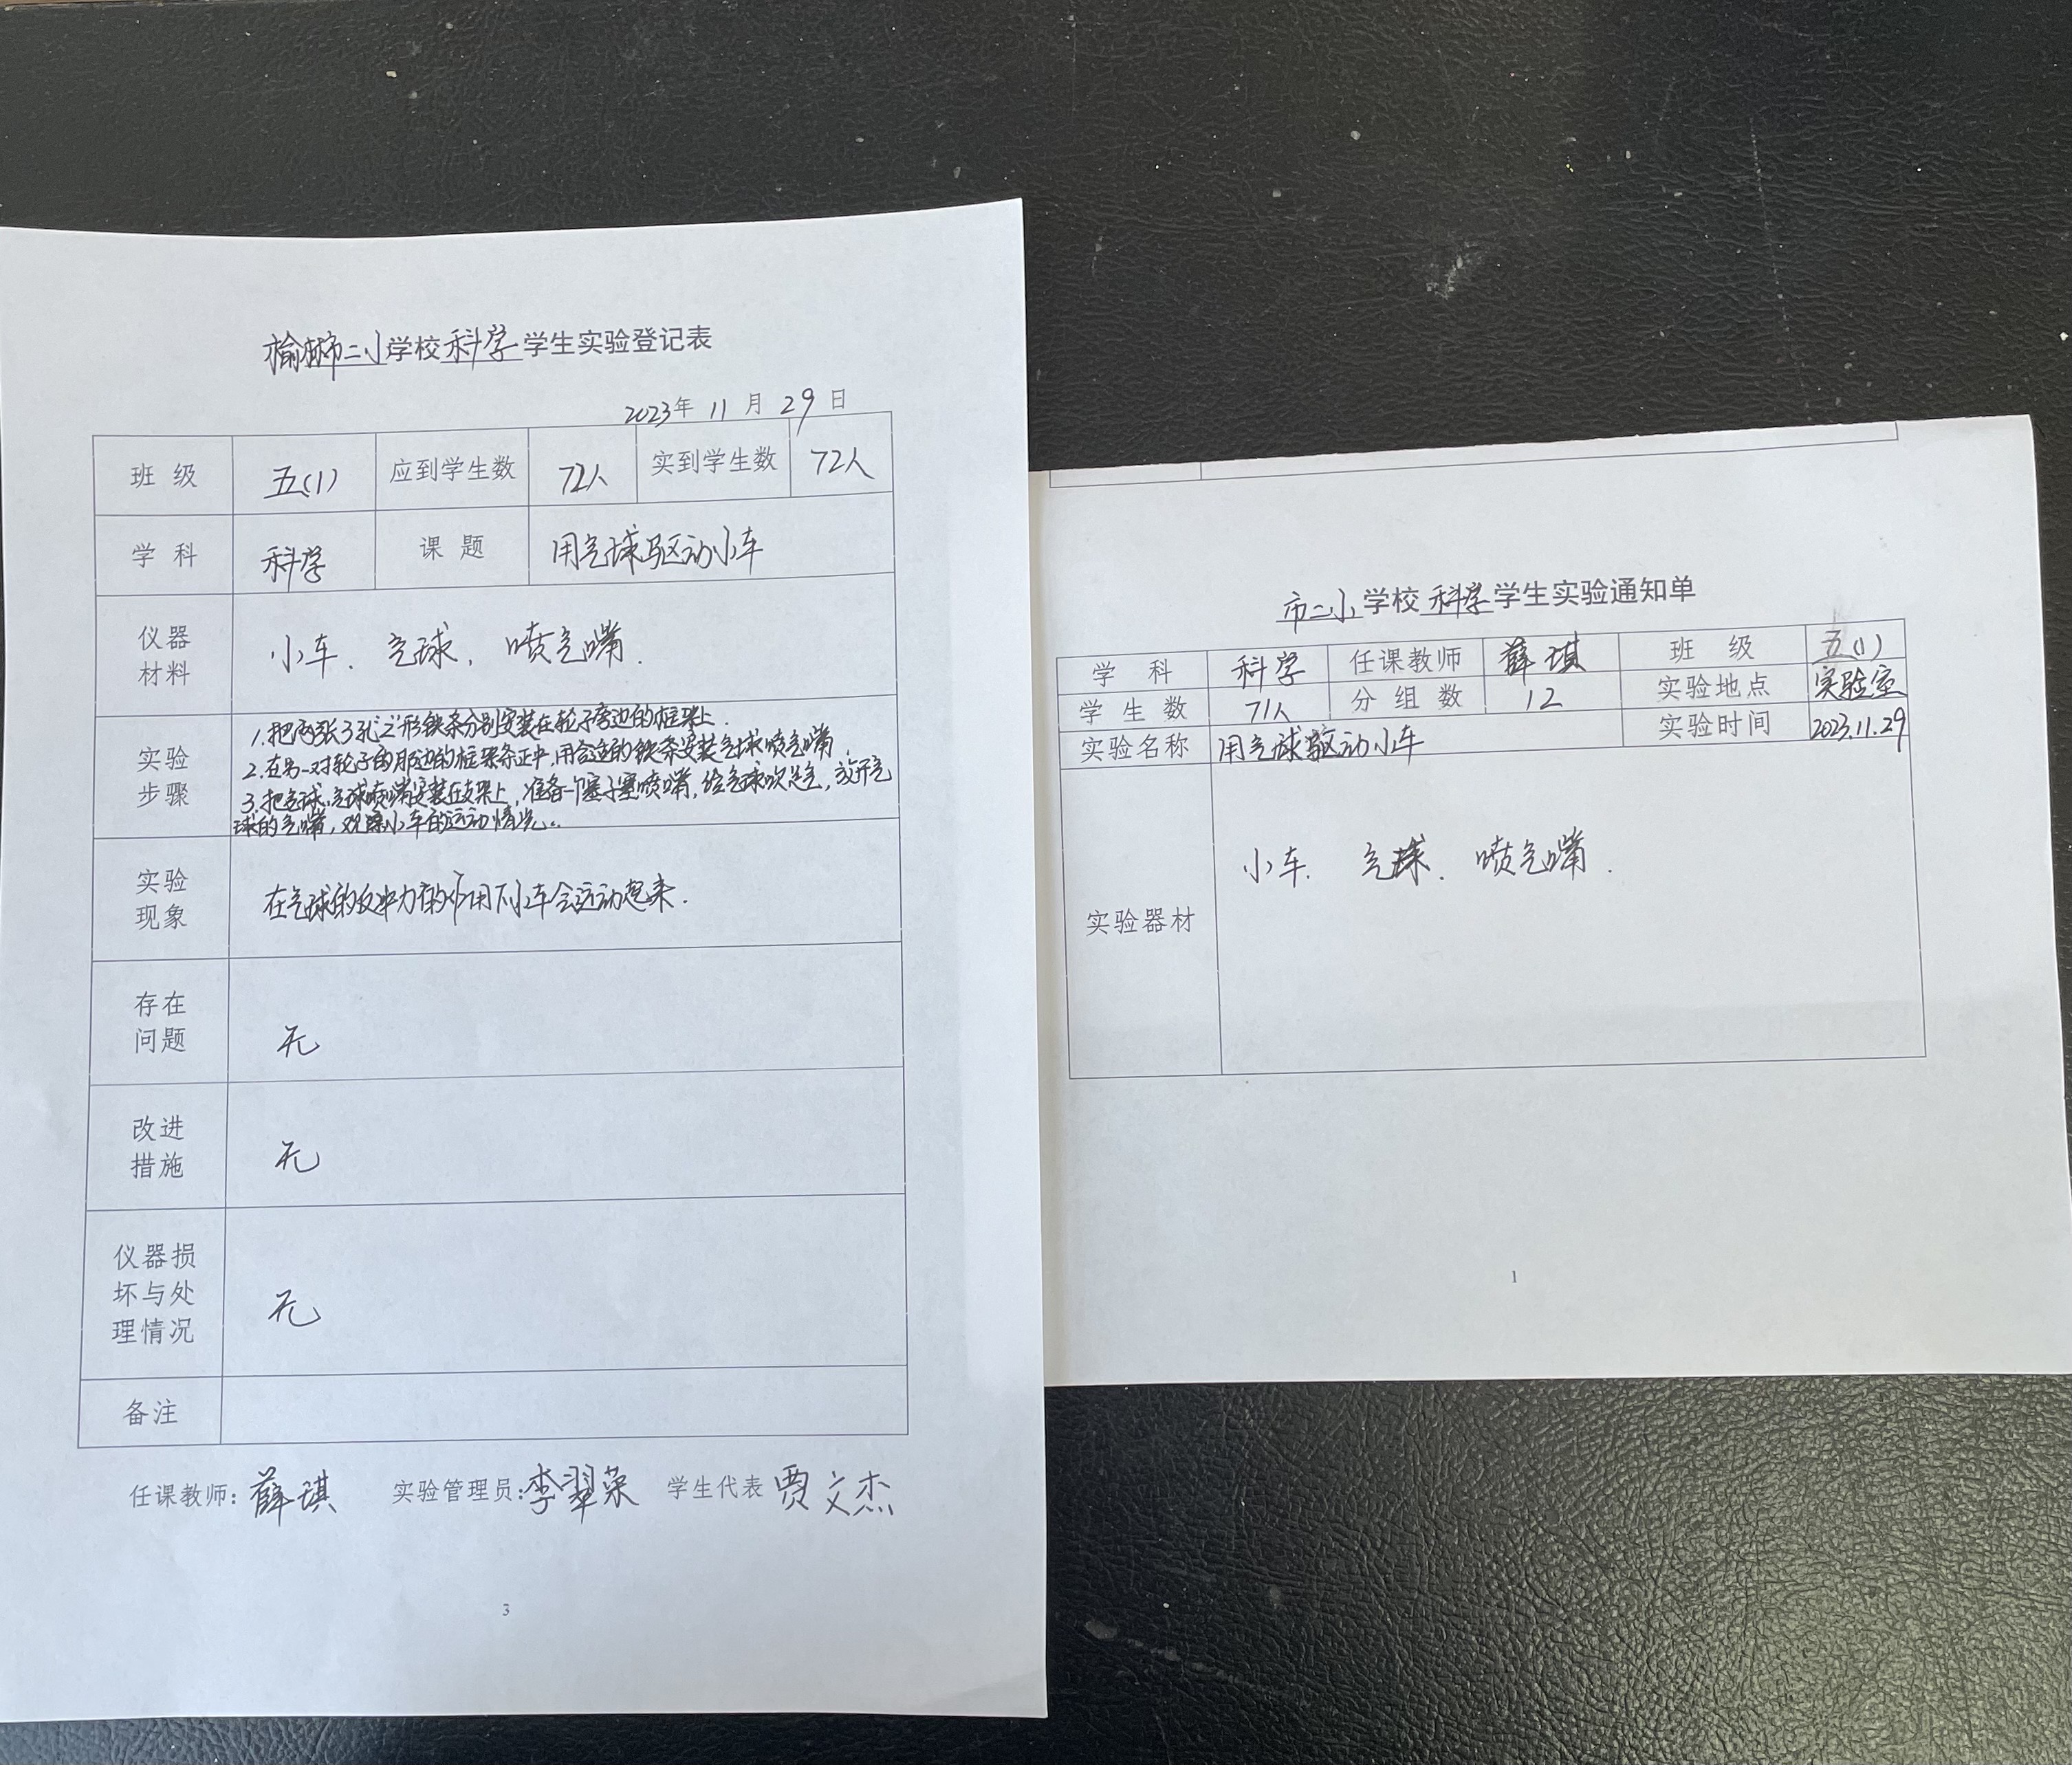 榆林市二小学校科学学生实验登记表
2023年 11 月 29 日
班 级 五(1) 应到学生数 72人 实到学生数 72人
学 科 科学 课 题 用气球驱动小车
仪器
材料
小车、气球、喷气嘴.
实验
步骤
1.把两张3孔之形铁条分别安装在轮子旁边的框架上.
2.在另一对轮子的用边的框架条正中,用合适的铁条安装气球喷气嘴.
3.把气球、气球喷嘴安装在支架上,准备一个塞子塞喷嘴,给气球吹足气,放开气
球的气嘴,观察小车的运动情况.
实验
现象
在气球的反冲力的作用下小车会运动起来.
存在
问题
无
改进
措施
无
仪器损
坏与处
理情况
无
备注
任课教师: 薛琪 实验管理员: 李翠荣 学生代表 贾文杰
3
市二小学校科学学生实验通知单
学 科 科学 任课教师 薛琪 班 级 五(1)
学 生 数 71人 分 组 数 12 实验地点 实验室
实验名称 用气球驱动小车 实验时间 2023.11.29
实验器材
小车. 气球. 喷气嘴.
1